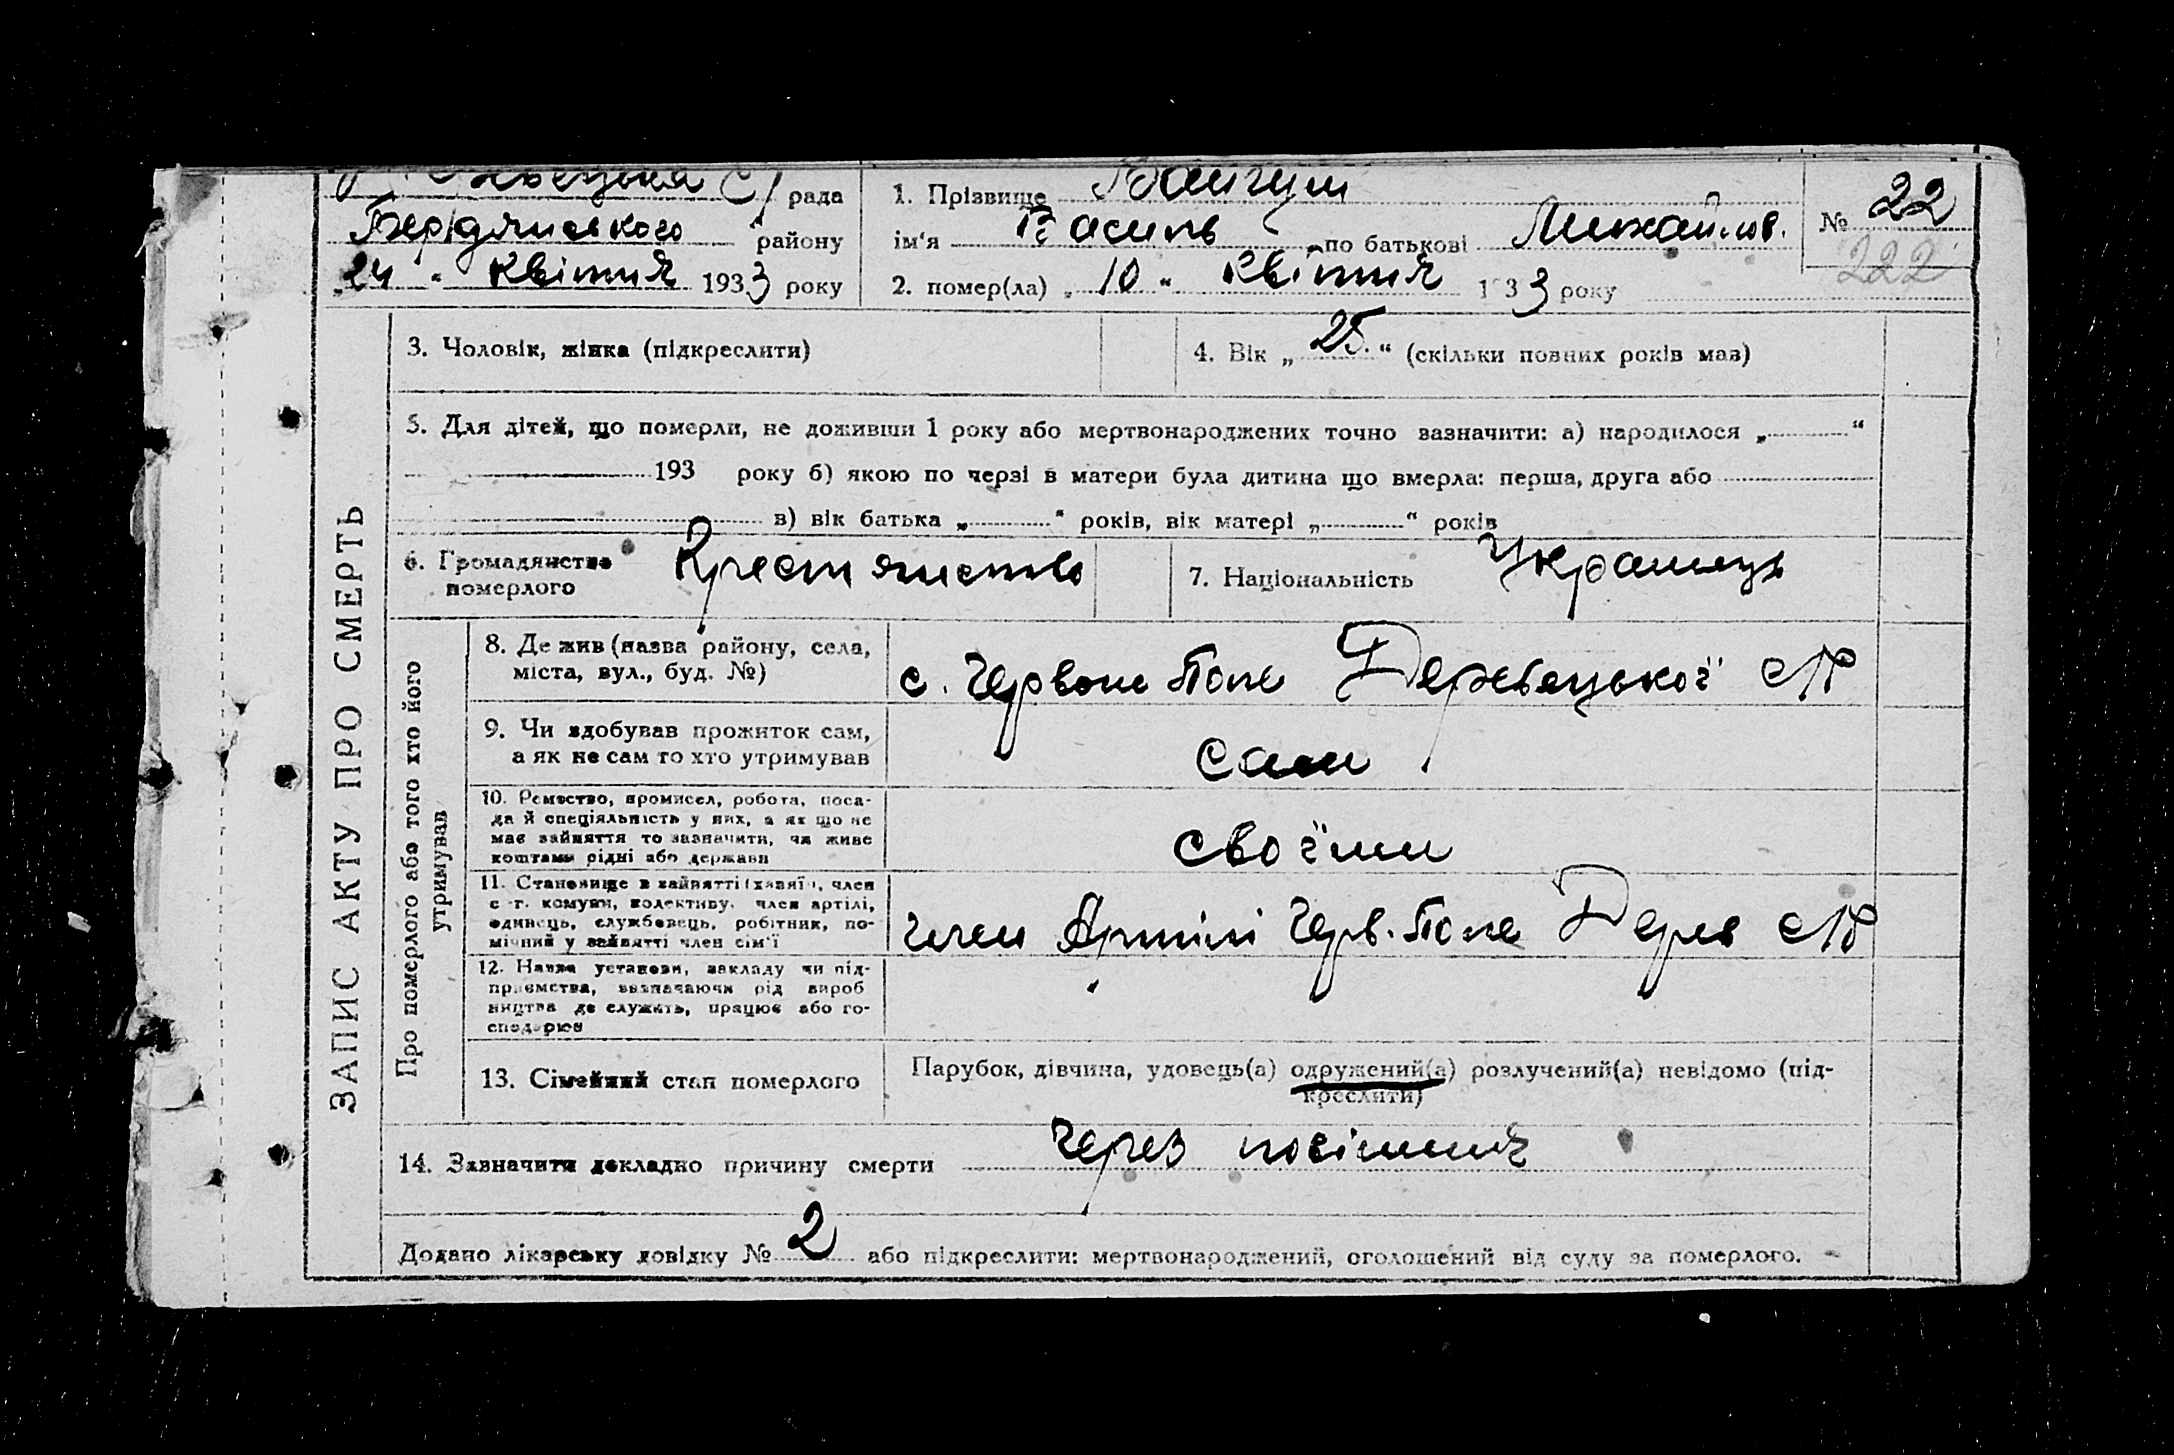 рада
Бердянського району
„24“ квітня 1933 року
1. Прізвище
ім'я Василь по батькові Михайлов.
2. помер(ла) „10“ квітня 1933 року
№ 22
222
ЗАПИС АКТУ ПРО СМЕРТЬ
3. Чоловік, жінка (підкреслити)
4. Вік „25.“ (скільки повних років мав)
5. Для дітей, що померли, не доживши 1 року або мертвонароджених точно вазначити: а) народилося „ “
193 року б) якою по черзі в матери була дитина що вмерла: перша, друга або
в) вік батька „ “ років, вік матері „ “ років
6. Громадянство Крестянство
померлого
7. Національність Украинець
Про померлого або того хто його
утримував
8. Де жив (назва району, села,
міста, вул., буд. №)
с. Червоне Поле
9. Чи здобував прожиток сам,
а як не сам то хто утримував
Сам
10. Ремество, промисел, робота, поса-
да й спеціяльність у них, а як що не
має зайняття то зазначити, чи живе
коштами рідні або держави
своїми
11. Становище в зайнятті (хазяїн, член
с.-г. комуни, колективу, член артілі,
одинець, службовець, робітник, по-
мічний у зайнятті член сім'ї
член Артілі Черв. Поле
12. Назва установи, закладу чи під-
приємства, зазначаючи рід вироб
ництва де служить, працює або го-
сподарює
13. Сімейний стан померлого
Парубок, дівчина, удовець(а) одружений(а) розлучений(а) невідомо (під-
креслити)
14. Зазначити докладно причину смерти Через
Додано лікарську довідку № 2 або підкреслити: мертвонароджений, оголошений від суду за померлого.